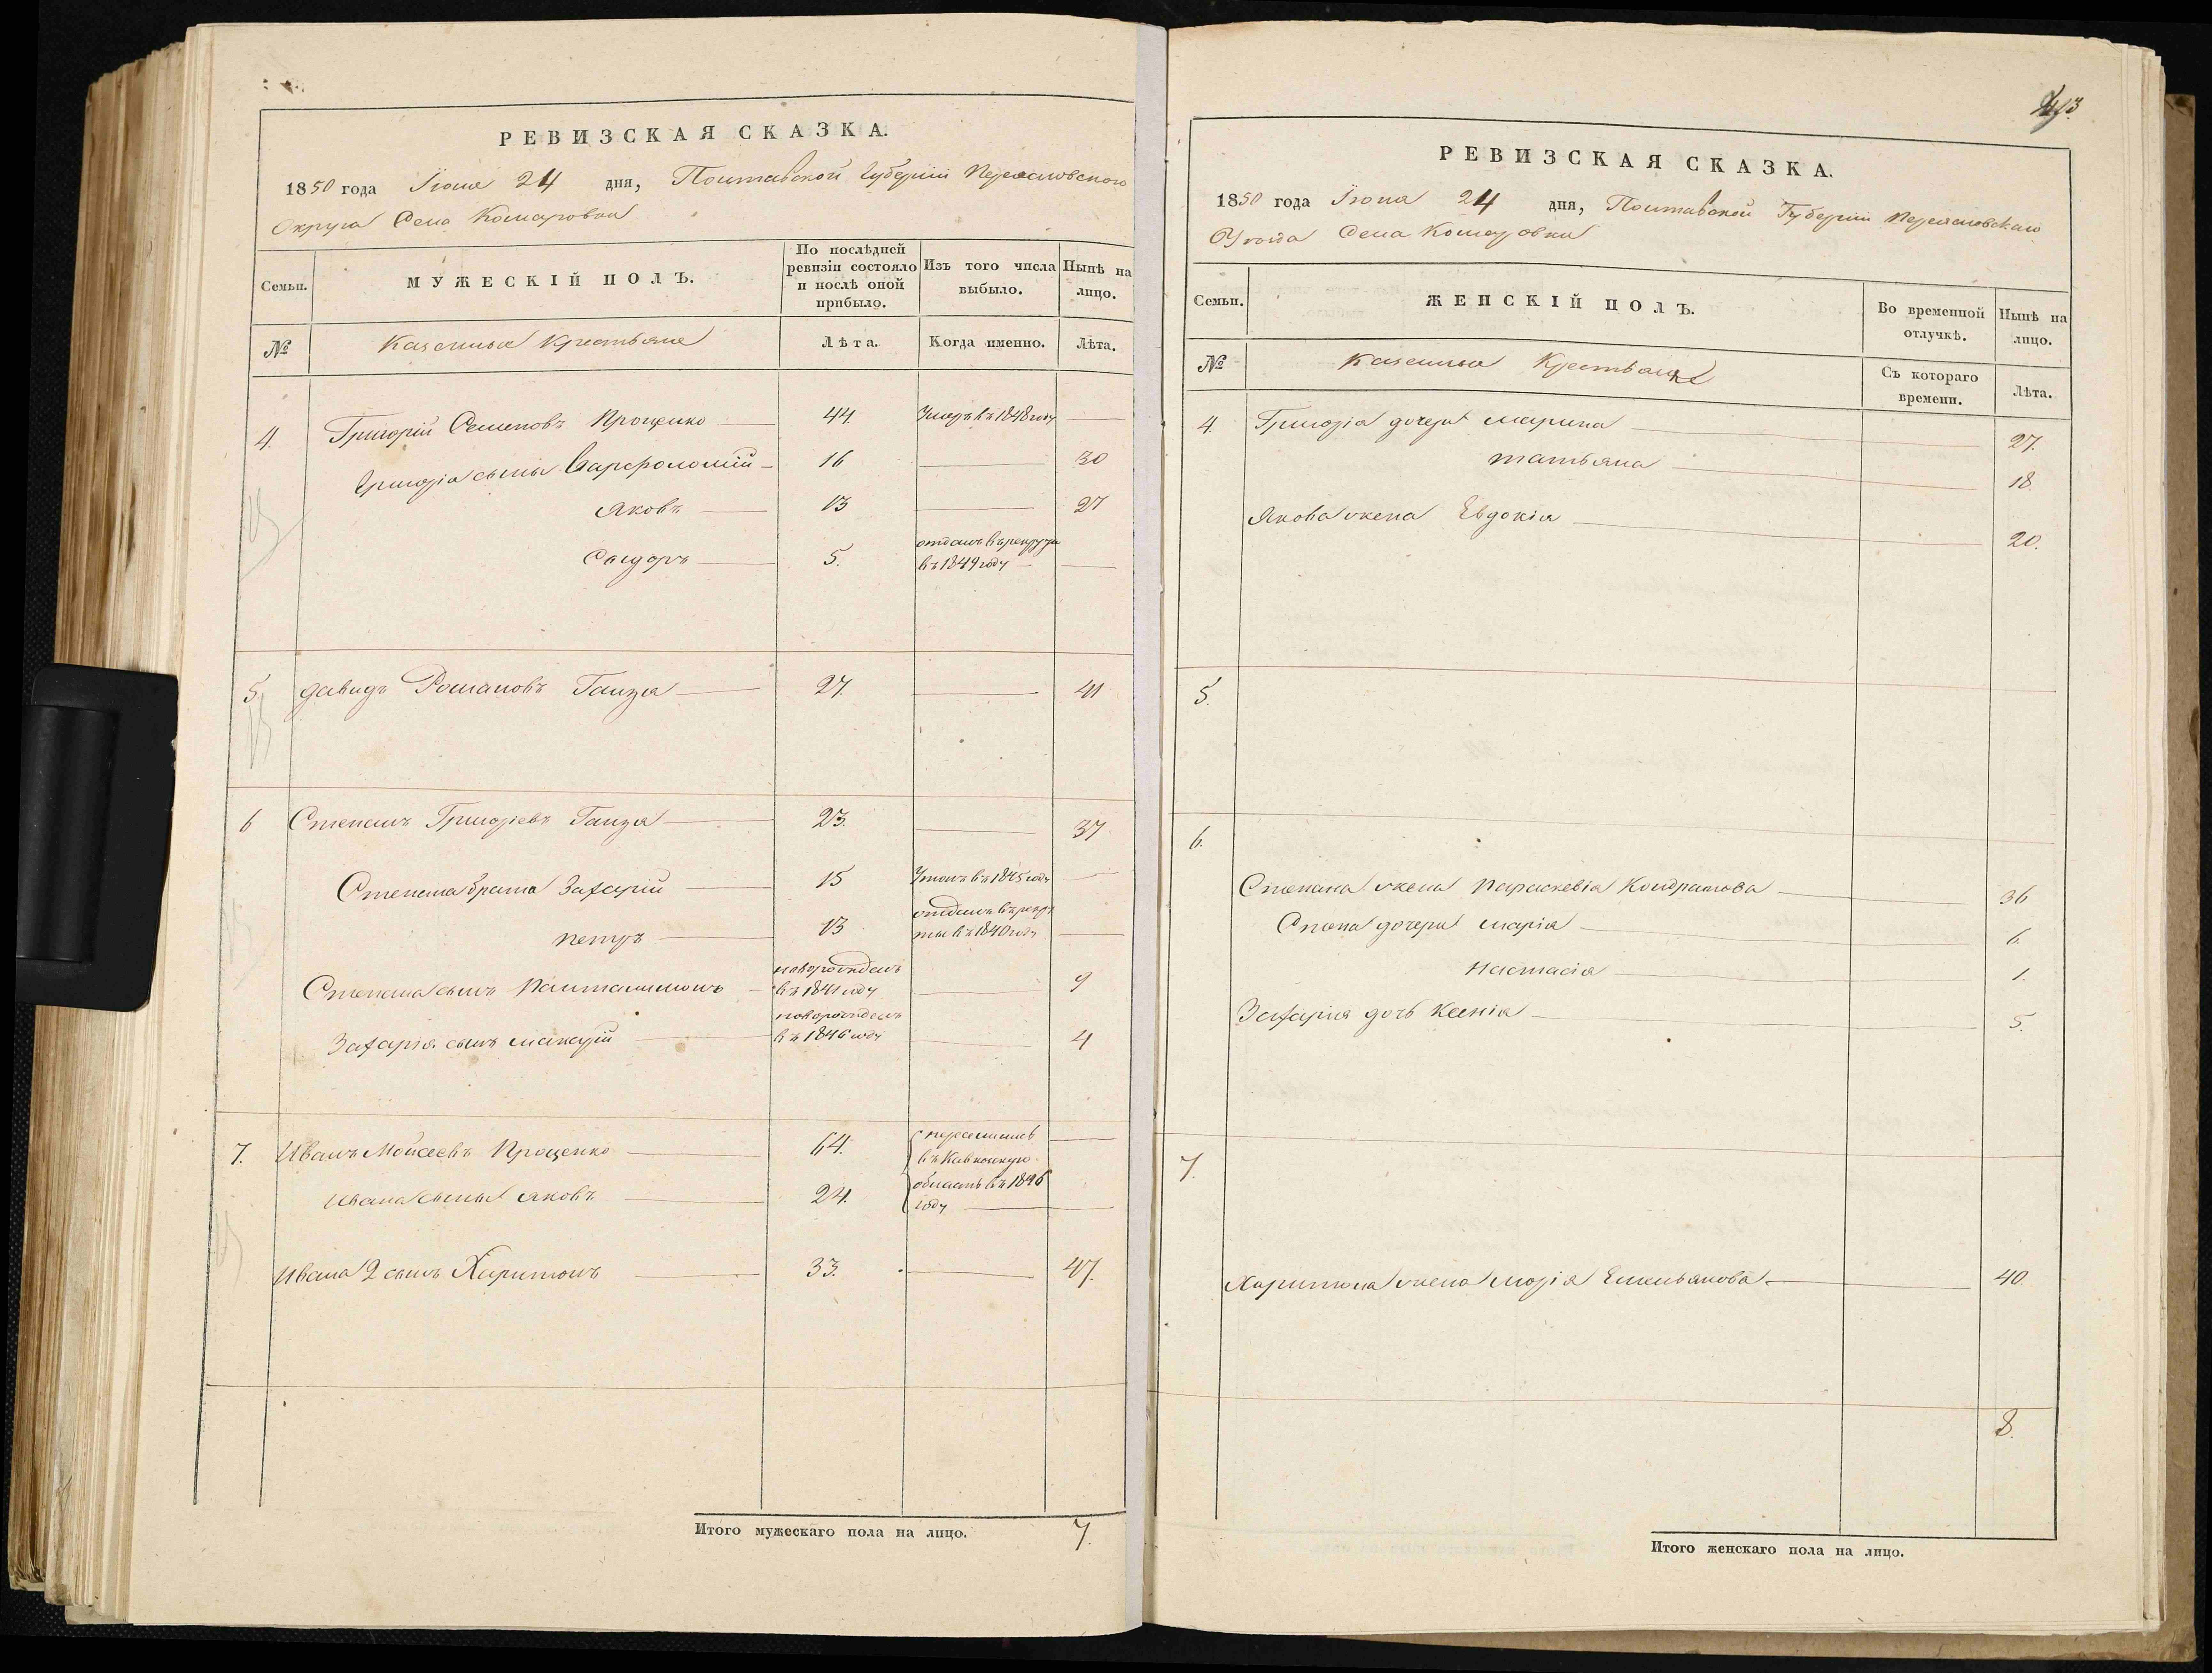 РЕВИЗСКАЯ СКАЗКА.
1850 года Іюня 24 дня, Полтавской Губерніи Переяславского
Округа Села Комаровки
Семьи.
МУЖЕСКІЙ ПОЛЪ.
По послѣдней ревизіи состояло и послѣ оной прибыло.
Изъ того числа выбыло.
Нынѣ на лицо.
№
Казенные Крестьяне
Лѣта.
Когда именно.
Лѣта.
4. Григорій Семеновъ Проценко 44. Умеръ въ 1848 году
Григорія сыны Варфоломій 16 30
Яковъ 13 27
Сыдоръ 5. отданъ въ рекруты
въ 1849 году
5. Давидъ Романовъ Ганзя 27. 41
6 Степанъ Григоріевъ Ганзя 23. 37
Степана брата Захарій 15 Утонъ въ 1845 году
Петръ 13 отданъ въ рекру
ты въ 1840 году
Степана сынъ Панталимонъ новорожденъ
въ 1841 году 9
Захарія сынъ Макарій новорожденъ
въ 1846 году 4
7. Иванъ Мойсеевъ Проценко 64. переселился
въ Кавказкую
Ивана сыны Яковъ 24. область въ 1846
году
Ивана 2 сынъ Харитонъ 33. 47.
Итого мужескаго пола на лицо. 7.
413
РЕВИЗСКАЯ СКАЗКА.
1850 года Іюня 24 дня, Полтавской Губерніи Переяславскаго
Уѣзда Села Комаровки
Семьи.
ЖЕНСКІЙ ПОЛЪ.
Во временной отлучкѣ.
Нынѣ на лицо.
№
Казенные Крестьянке
Съ котораго времени.
Лѣта.
4. Григорія дочери Марина 27.
Татьяна 18.
Якова жена Евдокія 20.
5.
6.
Степана жена Параскевія Кондратова 36
Степа дочери Марія 6.
Настасія 1.
Захарія дочь Ксенія 5.
7.
Харитона жена Марія Емельянова 40.
8.
Итого женскаго пола на лицо.